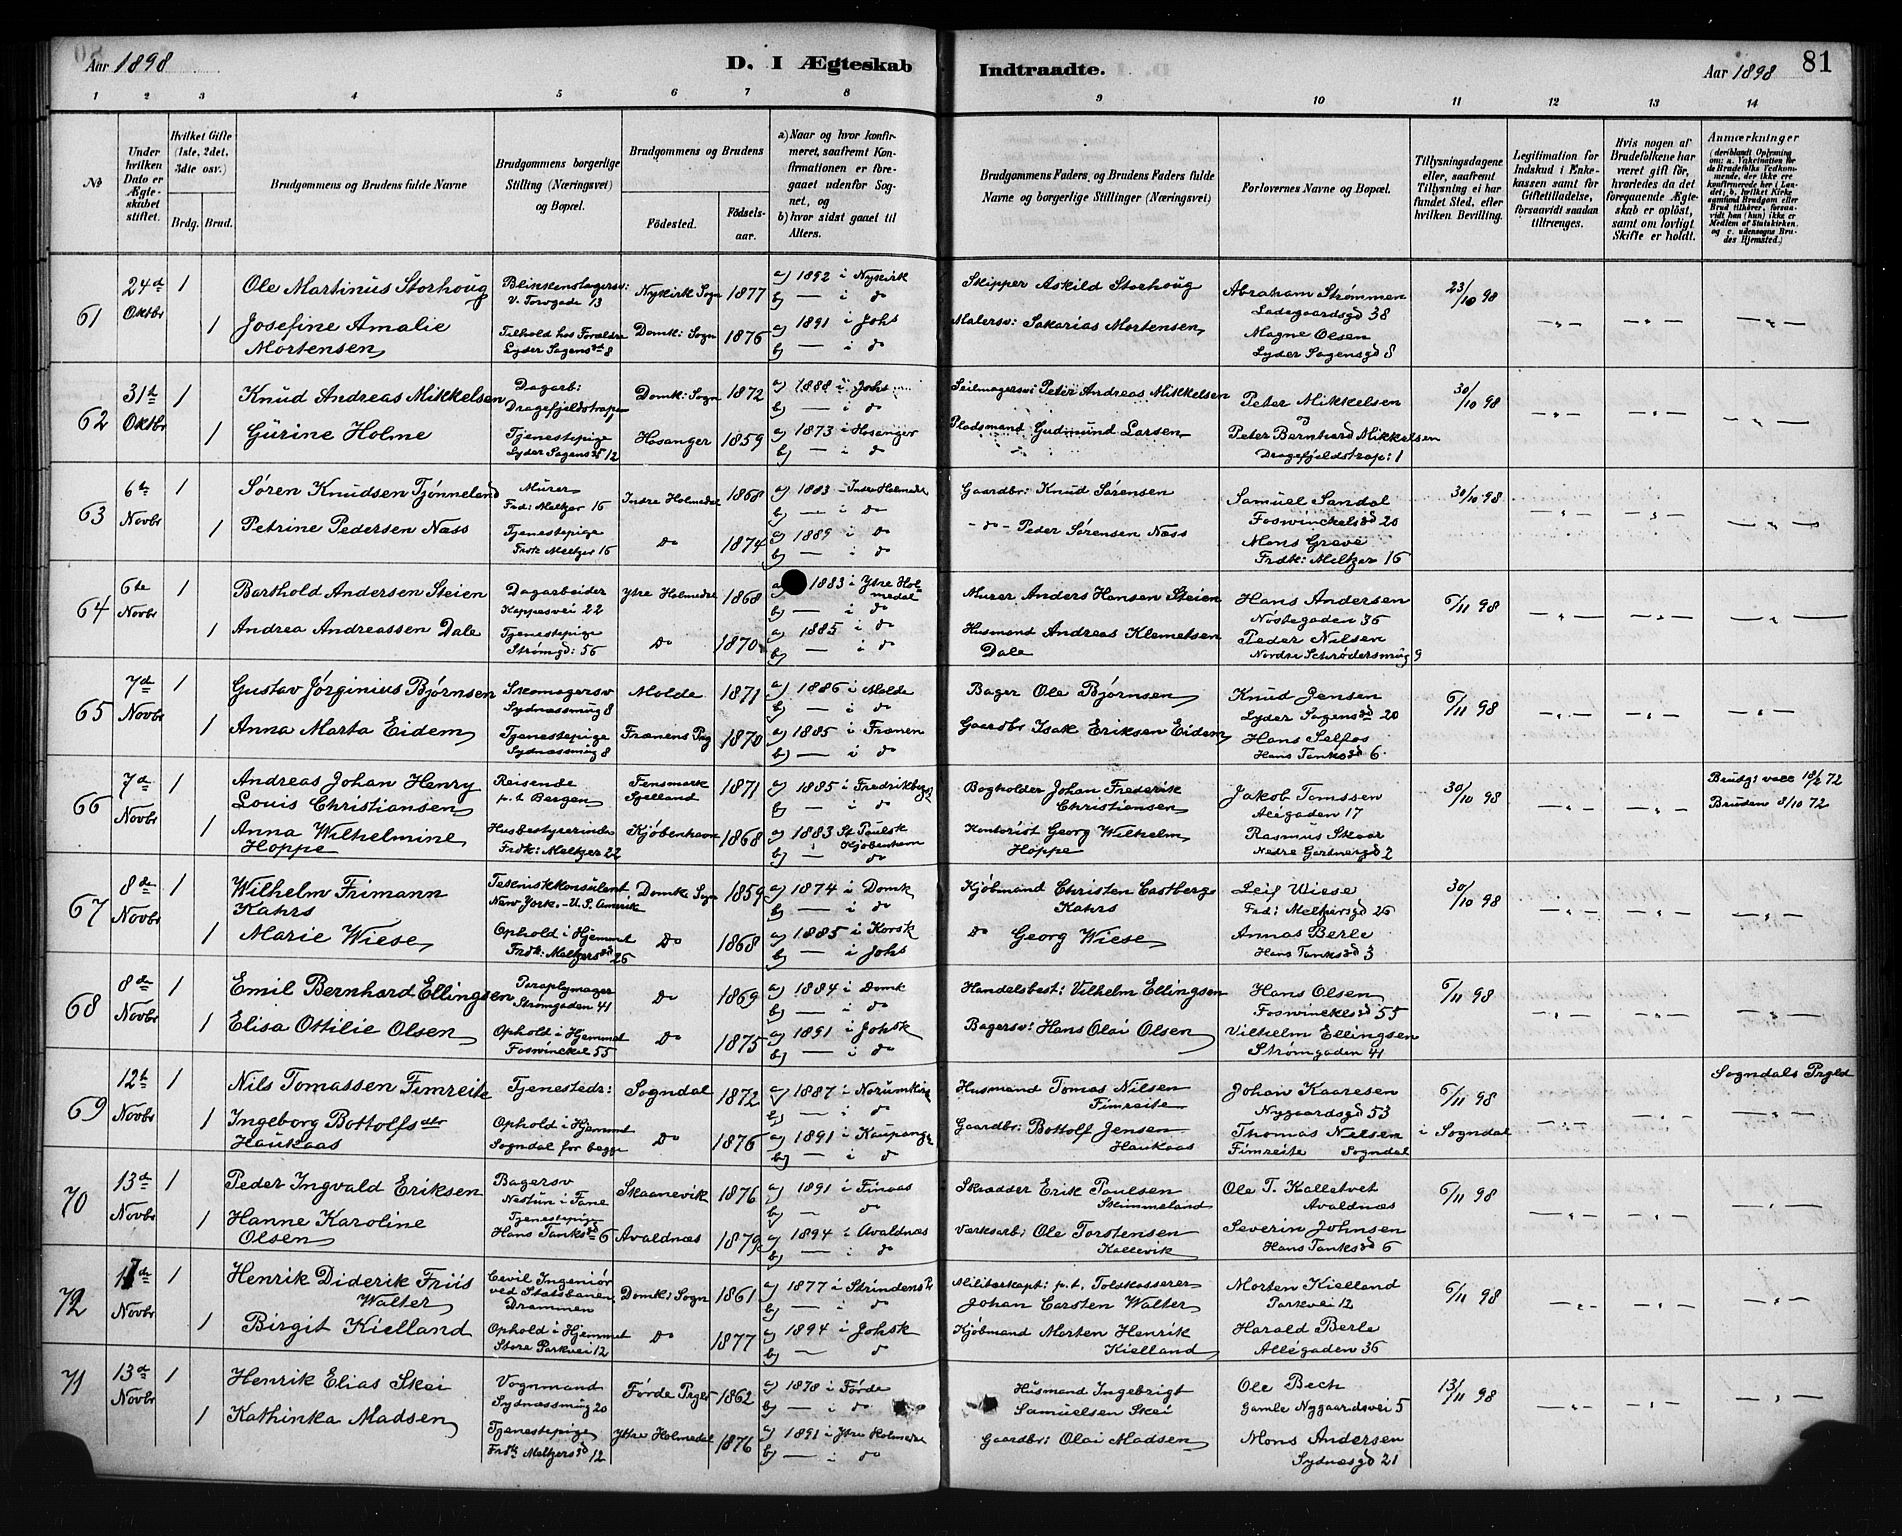 Aar 1898
D. I Ægteskab
Indtraadte.
Aar 1898
81
1 2 3 4 5 6 7 8 9 10 11 12 13 14
№
Under hvilken Dato er Ægteskabet stiftet.
Hvilket Gifte (1ste, 2det, 3die osv.)
Brdg. Brud.
Brudgommens og Brudens fulde Navne
Brudgommens borgerlige Stilling (Næringsvei) og Bopæl.
Brudgommens og Brudens
Fødested.
Fødselsaar.
a) Naar og hvor konfirmeret, saafremt Konfirmationen er foregaaet udenfor Sognet, og
b) hvor sidst gaaet til Alters.
Brudgommens Faders, og Brudens Faders fulde Navne og borgerlige Stillinger (Næringsvei)
Forlovernes Navne og Bopæl.
Tillysningsdagene eller, saafremt Tillysning ei har fundet Sted, efter hvilken Bevilling.
Legitimation for Indskud i Enkekassen samt for Giftetilladelse, forsaavidt saadan tiltrænges.
Hvis nogen af Brudefolkene har været gift før, hvorledes da det foregaaende Ægteskab er opløst, samt om lovligt Skifte er holdt.
Anmærkninger
61 24d Oktbr 1 Ole Martinus Storhoug Blikkenslagersv: V. Torvgade 13 Nykirk Sogn 1877 a) 1892 i Nykirk b) — i do Skipper Askild Storhoug Abraham Strømmen Ladegaardsgd 38 23/10 98
1 Josefine Amalie Mortensen Tilhold hos Forældre Lyder Sagensgd 8 Domk: Sogn 1876 a) 1891 i Johs b) — i do Malersv: Sakarias Mortensen Magne Olsen Lyder Sagensgd 8
62 31te Oktbr 1 Knud Andreas Mikkelsen Dagarb: Dragefjeldstrapen Domk: Sogn 1872 a) 1888 i Johs b) — i do Seilmagersv: Peter Andreas Mikkelsen Peter Mikkelsen og 30/10 98
1 Gurine Holme Tjenestepige Lyder Sagensgd 12 Hosanger 1859 a) 1873 i Hosanger b) — i do Pladsmand Gudmund Larsen Peter Bernhard Mikkelsen Dragefjeldstrap: 1
63 6te Novbr 1 Søren Knudsen Tjønneland Murer Frd: Meltzer 16 Indre Holmedal 1868 a) 1883 - Indre Holmedal b) — i do Gaardbr: Knud Sørensen Samuel Sandal Foswinckelsgd 20 30/10 98
1 Petrine Pedersen Næss Tjenestepige Frdk: Meltzer 16 Do 1874 a) 1889 i Do b) — i do - do - Peder Sørensen Næss Mons Greve Frdk: Meltzer 16
64 6te Novbr 1 Barthold Andersen Steien Dagarbeider Kippersvei 22 Ytre Holmedal 1868 a) 1883 i Ytre Holmedal b) — i do Murer Anders Hansen Steien Hans Andersen Nøstegaden 36 6/11 98
1 Andrea Andreassen Dale Tjenestepige Strømgd: 56 Do 1870 a) 1885 i do b) — i do Husmand Andreas Klemetsen Dale Peder Nilsen Nordre Schrødersmug 9
65 7de Novbr 1 Gustav Jørginius Bjørnsen Skomagersv Sydnæssmug 8 Molde 1871 a) 1886 i Molde b) — i do Bager Ole Bjørnsen Knud Jensen Lyder Sagensgd 20 6/11 98
1 Anna Marta Eidem Tjenestepige Sydnæssmug 8 Frænens Prg 1870 a) 1885 i Frænen b) — i do Gaardbr Isak Eriksen Eidem Hans Selfos Hans Tanksgd 6
66 7de Novbr 1 Andreas Johan Henry Louis Christiansen Reisende p.t. Bergen Fensmark Sjelland 1871 a) 1885 i Fredrikbergs b) — i do Bogholder Johan Frederik Christiansen Jakob Tomssen Alegaden 17 30/10 98 Brudg: vacc 18/2 72
1 Anna Wilhelmine Hoppe Husbestyrerinde Frdk: Meltzer 22 Kjøbenhavn 1868 a) 1883 St Paulsk Kjøbenhavn b) i do Kontorist Georg Wilhelm Hoppe Rasmus Skaar Nedre Gartnergd 2 Bruden 8/10 72
67 8de Novbr 1 Wilhelm Frimann Kahrs Tekniskkonsulent New York. - U.S. Amerik Domk: Sogn 1859 a) 1874 i Domk b) — i do Kjøbmand Christen Castberg Kahrs Leif Wiese Frd: Meltzersgd 26 30/10 98
1 Marie Wiese Ophold i Hjemmet Frdk: Meltzersgd 26 Do 1868 a) 1885 i Korsk b) — i Johs Do Georg Wiese Annas Berle Hans Tanksgd 3
68 8de Novbr 1 Emil Bernhard Ellingsen Paraplymager Strømgaden 41 Do 1869 a) 1884 i Domk b) — i do Handelsbest: Vilhelm Ellingsen Hans Olsen Foswinckelsgd 55 6/11 98
1 Elisa Ottilie Olsen Ophold i Hjemmet Foswinckel 55 Do 1875 a) 1891 i Johsk b) — i do Bagersv: Hans Olai Olsen Vilhelm Ellingsen Strømgaden 41
69 12te Novbr 1 Nils Tomassen Fimreite Tjenestedr: Sogndal 1872 a) 1887 i Norumkirke b) — i do Husmand Tomas Nilsen Fimreite Johan Kaaresen Nygaardsgd 53 6/11 98 Sogndals Prgld
1 Ingeborg Bottolfsdtr Haukaas Ophold i Hjemmet Sogndal for begge Do 1876 a) 1891 i Kaupanger b) — i do Gaardbr: Bottolf Jensen Haukaas Thomas Nielsen Fimreite Sogndal i Sogndal
70 13de Novbr 1 Peder Ingvald Eriksen Bagersv Nestun i Fane Skaanevik 1876 a) 1891 i Finaas b) — do Skrædder Erik Paulsen Skimmeland Ole T. Kalletvet Avaldnæs 6/11 98
1 Hanne Karoline Olsen Tjenestepige Hans Tanksgd 6 Avaldnæs 1879 a) 1894 i Avaldnæs b) — i do Værksarb: Ole Torstensen Kallevik Severin Johnsen Hans Tanksgd 6
72 17de Novbr 1 Henrik Diderik Friis Walter Civil Ingeniør ved Statsbanen Drammen Domk: Sogn 1861 a) 1877 i Strindens P b) — i do Militærkapt: p.t. Toldkasserer Johan Carsten Walter Morten Kielland Parkvei 12 6/11 98
1 Birgit Kielland Ophold i Hjemmet Store Parkvei 12 Do 1877 a) 1894 i Johsk b) — do Kjøbmand Morten Henrik Kielland Harald Berle Allégaden 36
71 13de Novbr 1 Henrik Elias Skei Vognmand Sydnæssmug 20 Førde Prgld 1862 a) 1878 i Førde b) — i do Husmand Ingebrigt Samuelsen Skei Ole Bech Gamle Nygaardsvei 5 13/11 98
1 Kathinka Madsen Tjenestepige Frdk Meltzersgd 12 Ytre Holmedal 1876 a) 1891 i Ytre Holmedal b) — i do Gaardbr: Olai Madsen Mons Andersen Sydnæsgd 21